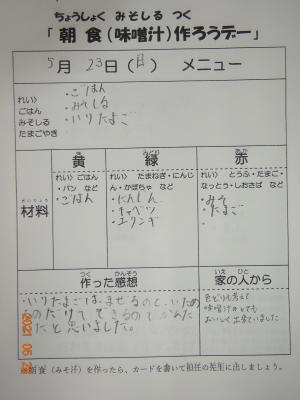 ちょうしょく みそしる つく
「朝食(味噌汁)作ろうデー」
5月 23日(日) メニュー
れい〉
ごはん
みそしる
たまごやき
・ごはん
・みそしる
・いりたまご
き
黄
みどり
緑
あか
赤
ざいりょう
材料
れい〉ごはん
・パン など
・ごはん
れい〉たまねぎ・にんじ
ん・かぼちゃ など
・にんじん
・キャベツ
・エリンギ
れい〉 とうふ・たまご・
なっとう・しおさば など
・みそ
・たまご
つく かんそう
作った感想
いえ ひと
家の人から
・いりたまごは、まぜるのと、いため
るのだけでできるのでかんた
んだと思いました。
色どりも考えて
味噌汁がとても
おいしく出来ていました
2021 05 23
※朝食(みそ汁)を作ったら、カードを書いて担任の先生に出しましょう。